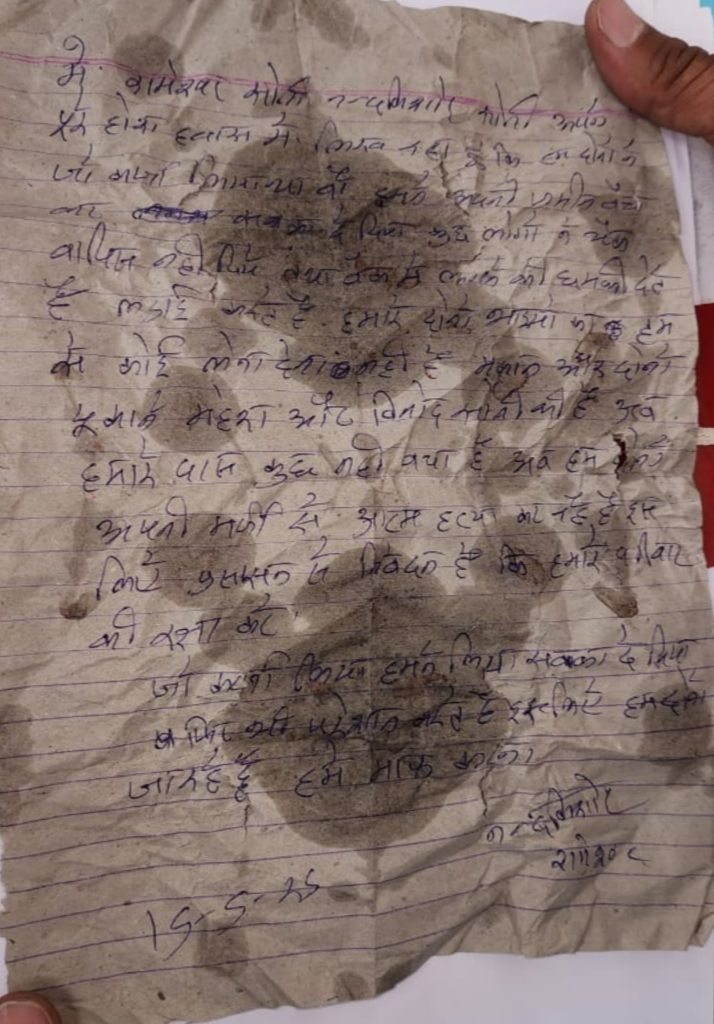 मै रामेश्वर सोनी नन्दकिशोर सोनी अपने
पूरे होश हवास में लिख रहा हूँ कि हम दोनो ने
जो कर्जा लिया था वो हमने अपनी जमीन बेच
कर सबका दे दिया कुछ लोगो ने चैक
वापिस नही दिये तथा चैक में लगाने की धमकी देते
है लड़ाई करते है. हमारे दोनो भाइयो का हम
से कोई लेना देना नही है मकान और दोनो
दूकाने महेश और विनोद सोनी की है अब
हमारे पास कुछ नही बचा है अब हम दोनो
अपनी मर्जी से आत्म हत्या कर रहे है इस
लिऐ प्रसासन से निवेदन है कि हमारे परिवार
की रक्षा करे
जो कर्जा लिया हमने लिया सबका दे दिया
फिर भी परेशान करते है इसलिऐ हम दोनो
जा रहे है हमे माफ करना
नन्दकिशोर
रामेश्वर
15-5-25